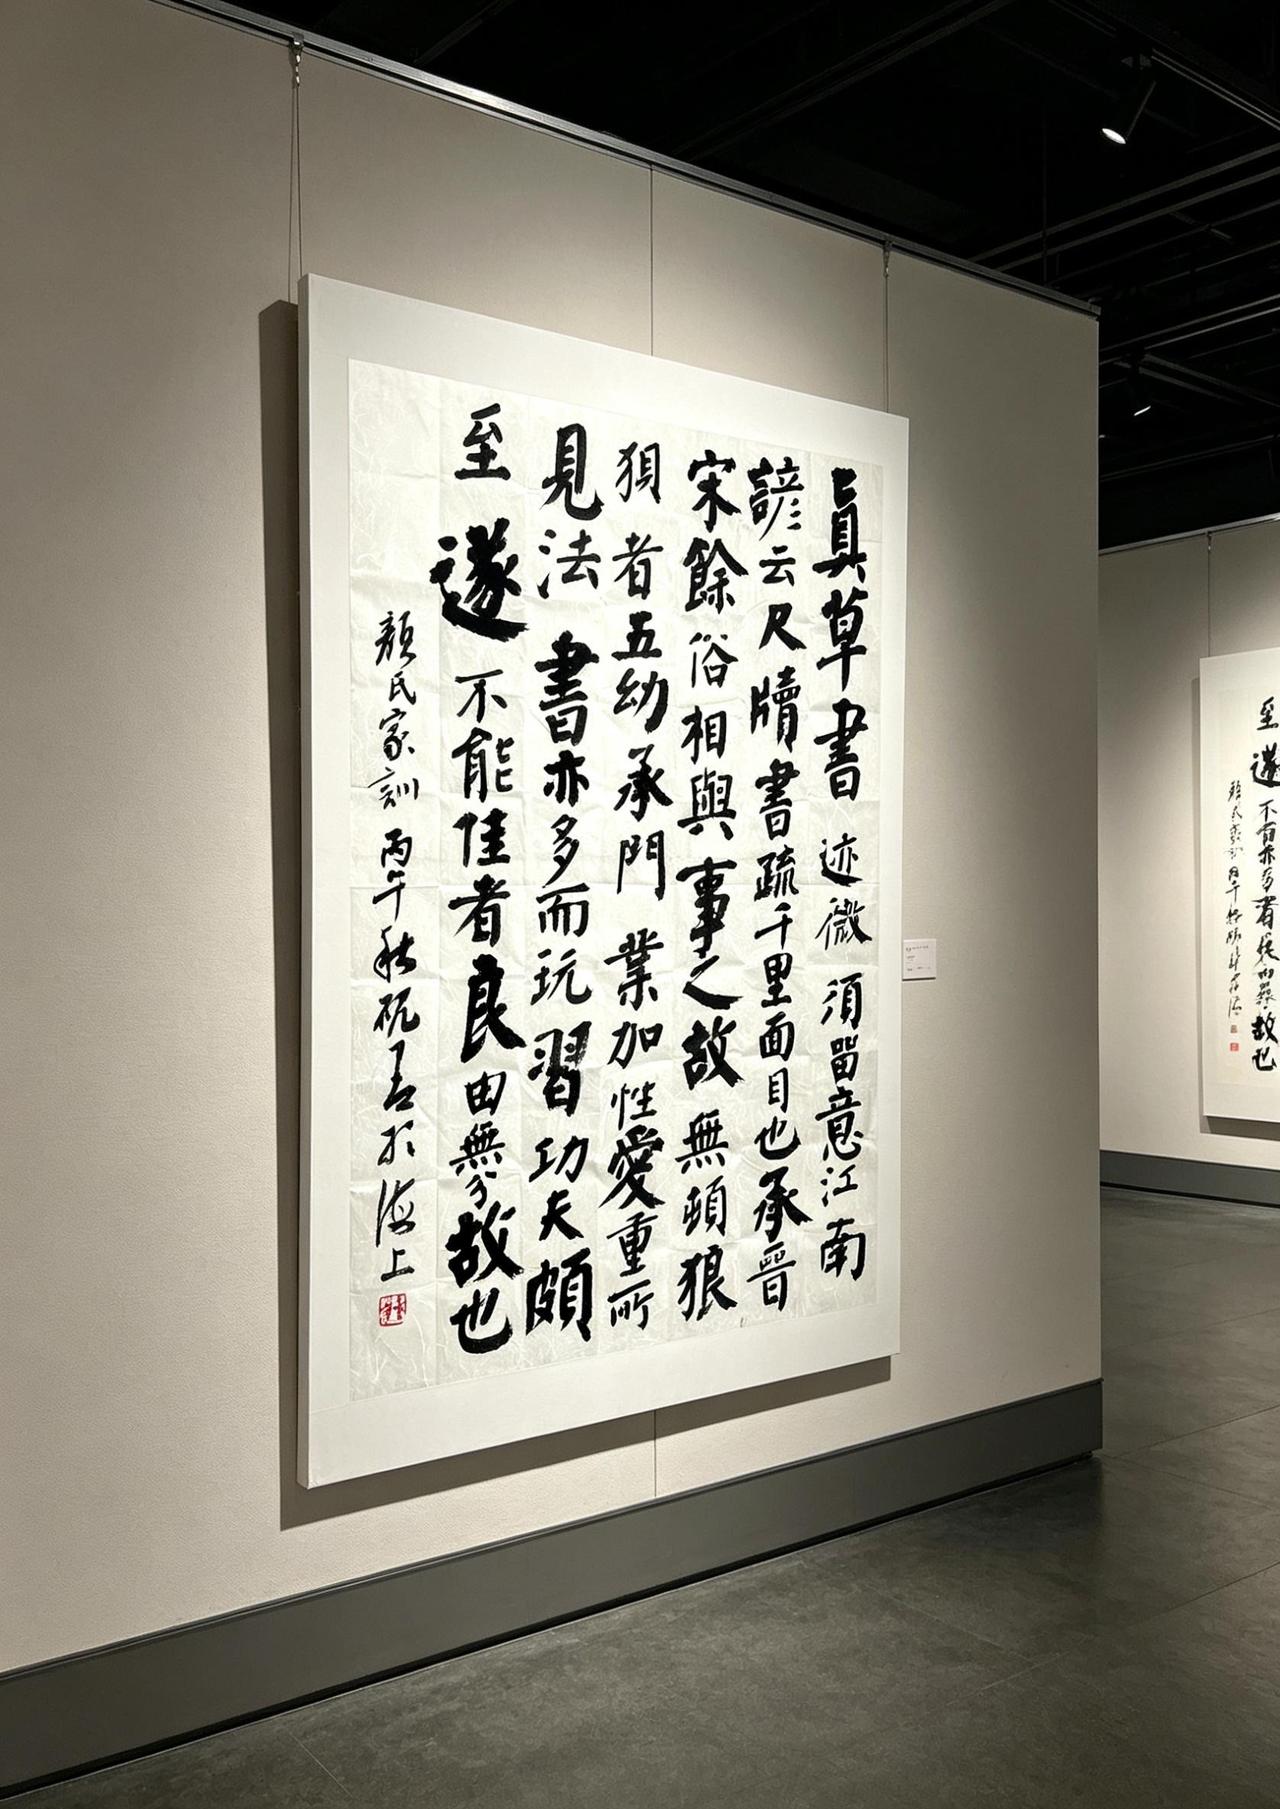 眞草書迹微須留意江南
諺云尺牘書疏千里面目也承晉
宋餘俗相與事之故無頓狼
狽者五幼承門業加性愛重所
見法書亦多而玩習功夫頗
至遂不能佳者良由無分故也
顏氏家訓丙午秋硯於海上
至遂不
故也